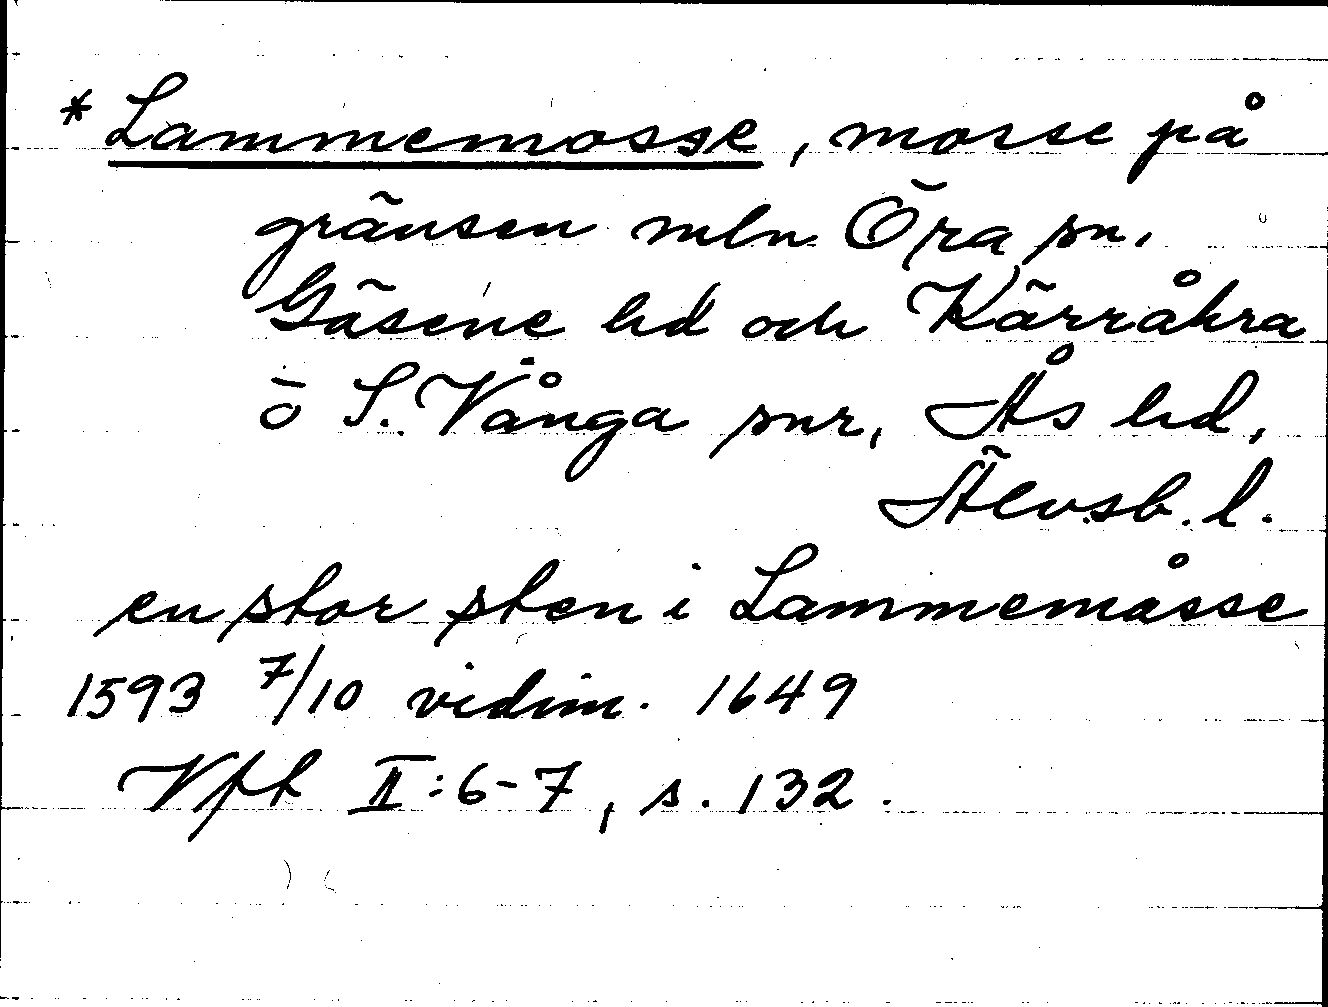 * Lammemosse, mosse på
gränsen mln Öra sn,
Gäsene hd och Kärråkra
o S. Vånga snr, Ås hd,
Älvsb. l.
en stor sten i Lammemåsse
1593 7/10 vidim. 1649
Vft II:6-7, s. 132.